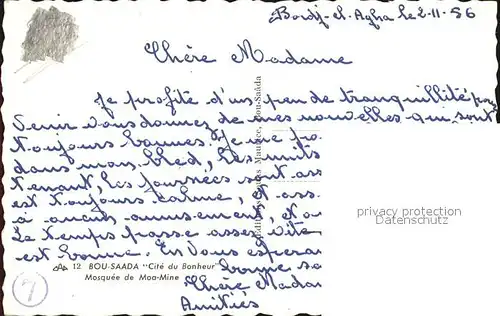 Bordj-el-Agha le 2-11-56
Chère Madame
Je profite d'un peu de tranquillité pour
venir vous donnez de mes nouvelles qui sont
toujours bonnes. Je me
dans mon bled, les nuits
tenant, les journées sont
est toujours calme, et
à aucun amusement, et
Le temps passe assez vite
est bonne. En vous
bonne
Chère
Amitiés
12 BOU-SAADA "Cité du Bonheur"
Mosquée de Moa-Mine
7
privacy protection
Datenschutz